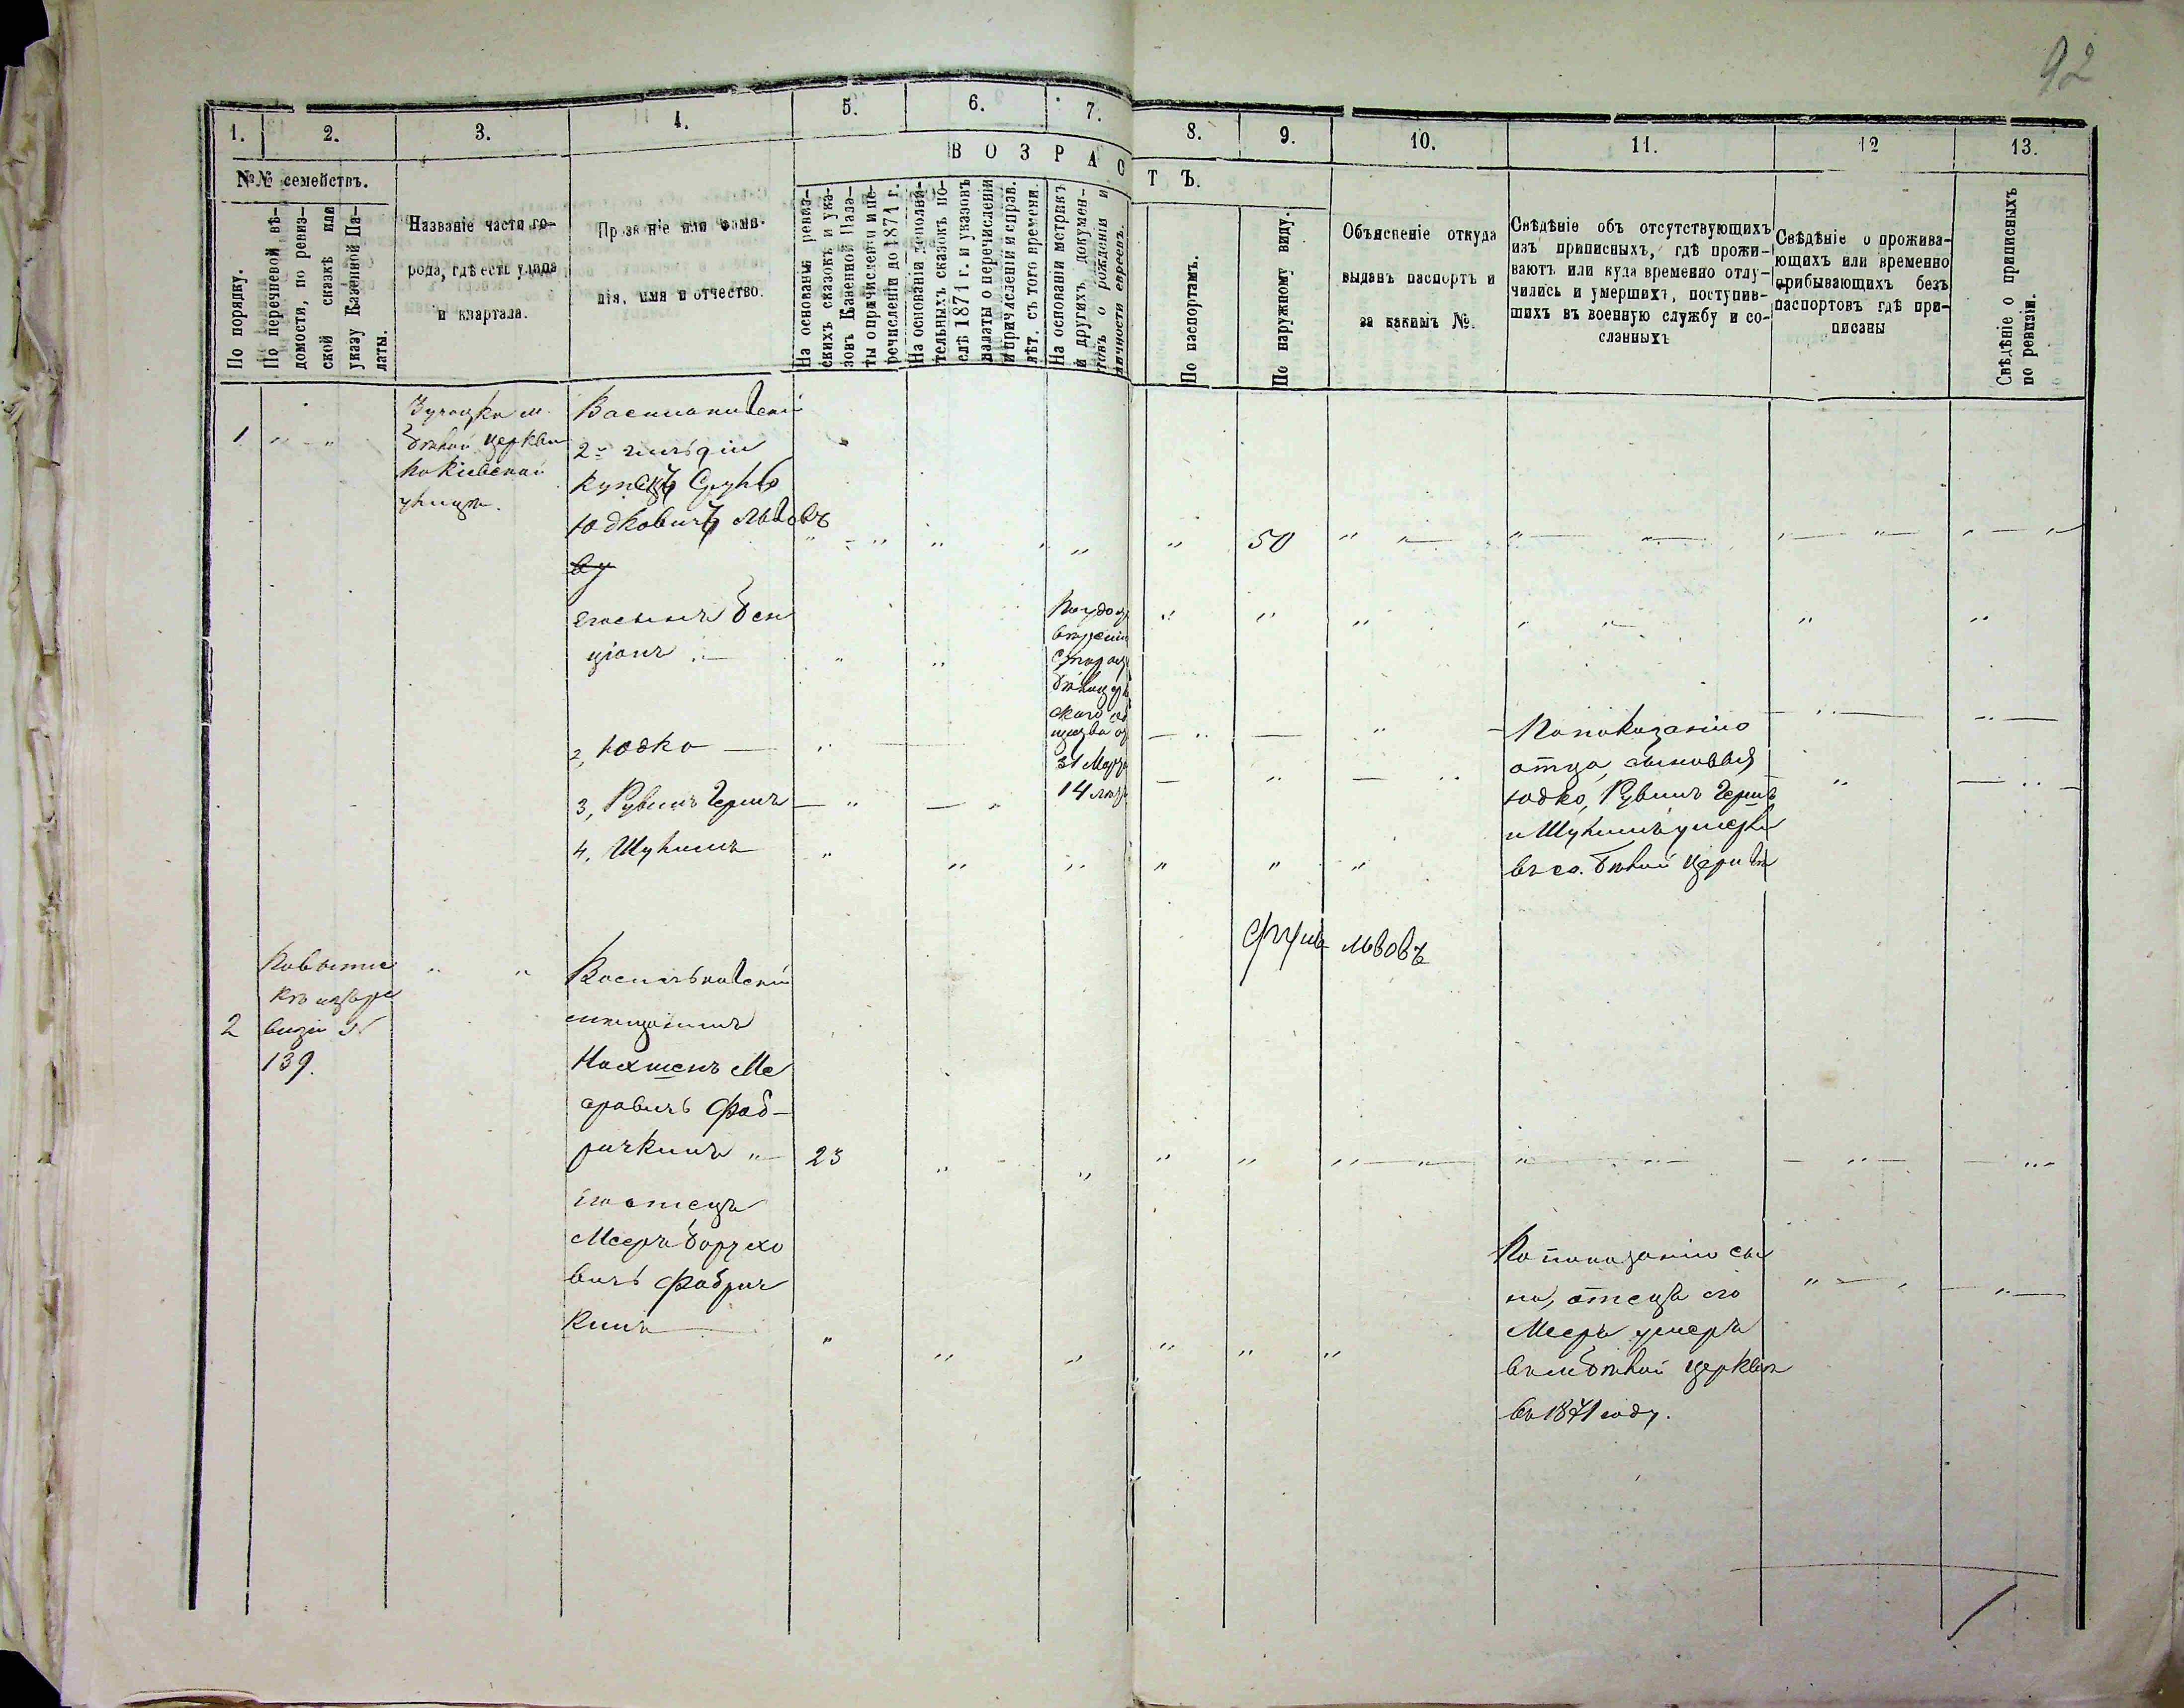 92
1. 2. 3. 4. 5. 6. 7. 8. 9. 10. 11. 12 13.
В О З Р А С Т Ъ.
№№ семействъ.
По порядку.
По перечневой вѣ-
домости, по ревиз-
ской сказкѣ или
указу Казенной Па-
латы.
Названіе части го-
рода, гдѣ есть улица
и квартала.
Прозваніе или фами-
лія, имя и отчество.
На основаніи ревиз-
скихъ сказокъ и ука-
зовъ Казенной Пала-
ты о причисленіи и пе-
речисленіи до 1871 г.
На основаніи дополни-
тельныхъ сказокъ по-
слѣ 1871 г. и указовъ
палаты о перечисленіи
и причисленіи и справ.
лѣт. съ того времени.
На основаніи метрикъ
и другихъ докумен-
товъ о рожденіи и
личности евреевъ.
По паспортамъ.
По наружному виду.
Объясненіе откуда
выданъ паспортъ и
за какимъ №.
Свѣдѣніе объ отсутствующихъ
изъ приписныхъ, гдѣ прожи-
ваютъ или куда временно отлу-
чились и умершихъ, поступив-
шихъ въ военную службу и со-
сланныхъ
Свѣдѣніе о прожива-
ющихъ или временно
прибывающихъ безъ
паспортовъ гдѣ при-
писаны
Свѣдѣніе о приписныхъ
по ревизіи.
1
м.
Бѣлой Церкви
по Кіевской
улицѣ.
Васильковскій
2й гильдіи
купецъ Сруль
Юдковичъ Львовъ
50
его сынъ Бен
ціонъ
По удосто
вѣренію
старосты
Бѣлоцерк
скаго
31 Марта
14 лѣтъ
2, Юдко
3, Рувинъ Гершъ
4, Шулимъ
По показанію
отца, сыновья
Юдко, Рувинъ Гершъ
и Шулимъ умерли
въ м. Бѣлой Церкви
Сруль Львовъ
2
139.
Васильковскій
мѣщанинъ
Нахманъ Ме
еровичъ Фаб-
ричкинъ
23
его отецъ
Мееръ Борухо
вичъ Фабрич
кинъ
По показанію сы
на, отецъ его
Мееръ умеръ
въ м. Бѣлой Церкви
въ 1871 году.